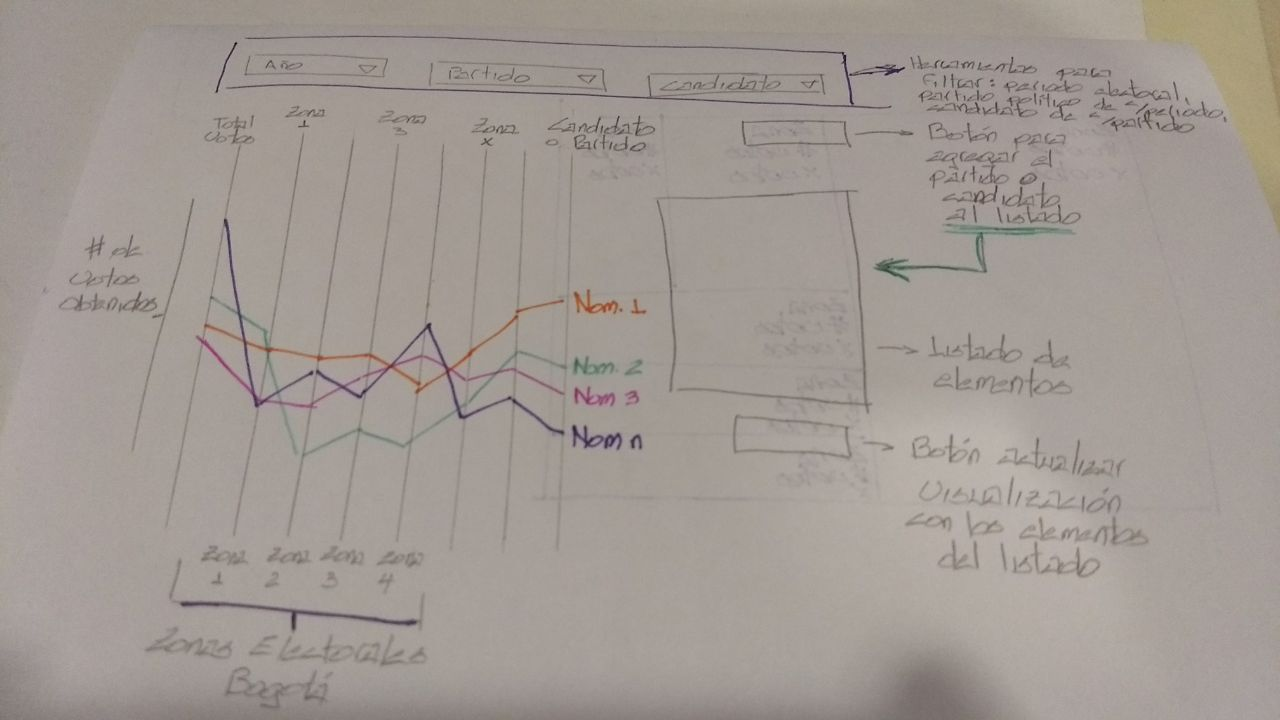 Año
Partido
Candidato
Herramientas para
Filtrar: periodo electoral,
partido político de c/periodo,
candidato de c/partido
Total
Votos
Zona
1
Zona
3
Zona
x
Candidato
o Partido
Botón para
agregar el
partido o
candidato
al listado
# de
Votos
Obtenidos
Nom. 1
Nom. 2
Nom 3
Nom n
Listado de
elementos
Botón actualizar
visualización
con los elementos
del listado
Zona
1
Zona
2
Zona
3
Zona
4
Zonas Electorales
Bogotá